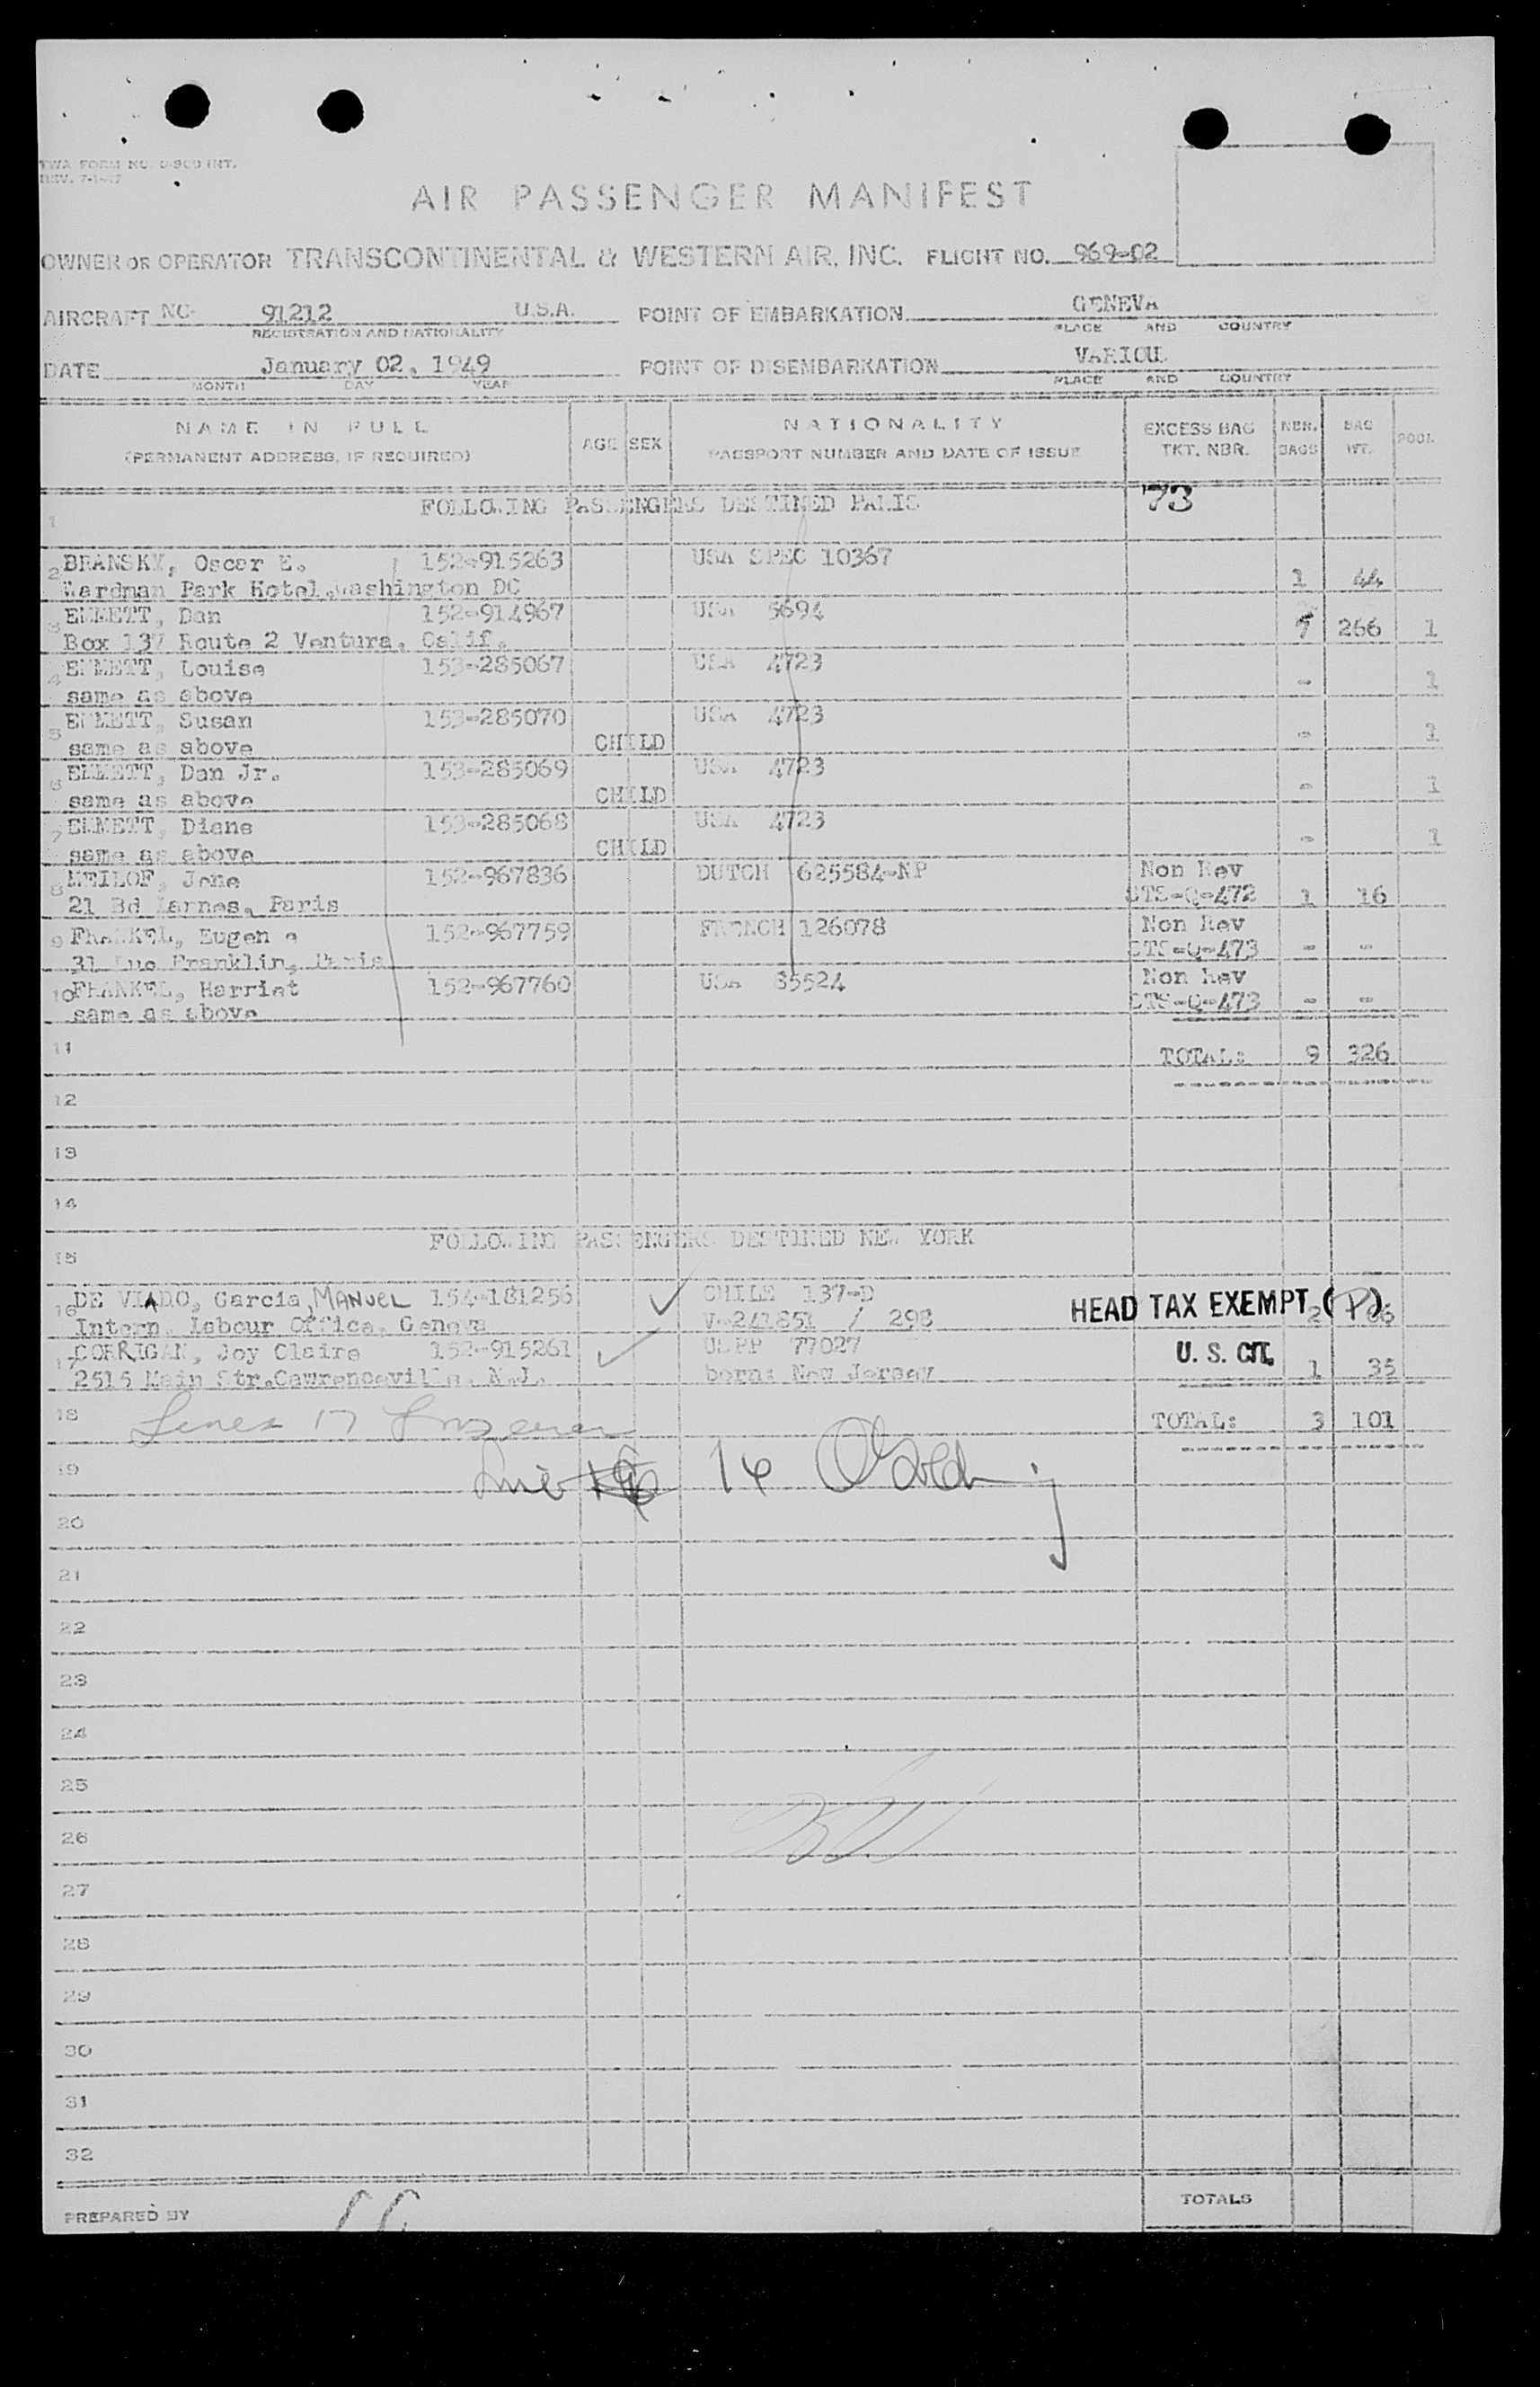 TWA FORM NO. INT.
REV.
AIR PASSENGER MANIFEST
OWNER OR OPERATOR TRANSCONTINENTAL & WESTERN AIR, INC. FLIGHT NO. 969-02
AIRCRAFT NC- 91212 U.S.A. POINT OF EMBARKATION GENEVA
REGISTRATION AND NATIONALITY PLACE AND COUNTRY
DATE January 02, 1949 POINT OF DISEMBARKATION VARIOU
MONTH DAY YEAR PLACE AND COUNTRY
NAME IN FULL AGE SEX NATIONALITY EXCESS BAG NBR. BAG POOL
(PERMANENT ADDRESS, IF REQUIRED) PASSPORT NUMBER AND DATE OF ISSUE TKT. NBR. BAGS WT.
1 FOLLOWING PASSENGERS DESTINED PARIS 73
2 BRANSKY, Oscar E. 152-915263 USA SPEC 10367
Wardman Park Hotel, Washington DC 1 44
3 EMMETT, Dan 152-914967 USA 5694
Box 137 Route 2 Ventura, Calif. 266 1
4 EMMETT, Louise 153-285067 USA 4723
same as above - 1
5 EMMETT, Susan 153-285070 USA 4723
same as above CHILD - 1
6 EMMETT, Dan Jr. 153-285069 USA 4723
same as above CHILD - 1
7 EMMETT, Diane 153-285068 USA 4723
same as above CHILD - 1
8 MEILOF, Jene 152-967836 DUTCH 625584-NP Non Rev
21 Bd Lannes, Paris CTS-Q-472 1 16
9 FRANKEL, Eugen e 152-967759 FRENCH 126078 Non Rev
31 Rue Franklin, Paris CTS-Q-473 - -
10 FRANKEL, Harriet 152-967760 USA 85524 Non Rev
same as above CTS-Q-473 - -
11 TOTAL: 9 326
12
13
14
15 FOLLOWING PASSENGERS DESTINED NEW YORK
16 DE VIADO, Garcia, MANUEL 154-181256 CHILE 137-D
Intern. Labour Office, Geneva V-241851 / 298 HEAD TAX EXEMPT 2
17 CORRIGAN, Joy Claire 152-915261 USPP 77027 U. S. CIT.
2515 Main Str. Cawrenceville, N.J. born: New Jersey 1 35
18 TOTAL: 3 101
19
20
21
22
23
24
25
26
27
28
29
30
31
32
PREPARED BY TOTALS